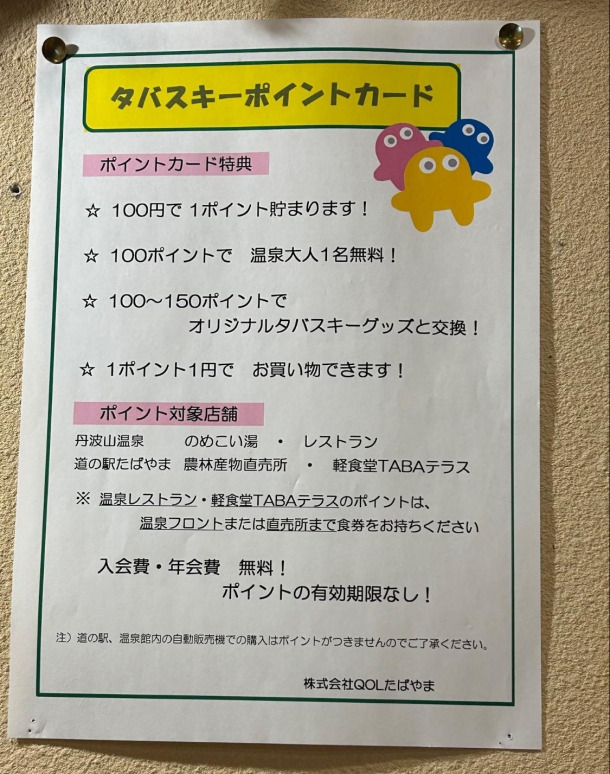 タバスキーポイントカード
ポイントカード特典
☆ 100円で 1ポイント貯まります！
☆ 100ポイントで 温泉大人1名無料！
☆ 100～150ポイントで
オリジナルタバスキーグッズと交換！
☆ 1ポイント1円で お買い物できます！
ポイント対象店舗
丹波山温泉 のめこい湯 ・ レストラン
道の駅たばやま 農林産物直売所 ・ 軽食堂TABAテラス
※ 温泉レストラン・軽食堂TABAテラスのポイントは、
温泉フロントまたは直売所まで食券をお持ちください
入会費・年会費 無料！
ポイントの有効期限なし！
注）道の駅、温泉館内の自動販売機での購入はポイントがつきませんのでご了承ください。
株式会社QOLたばやま